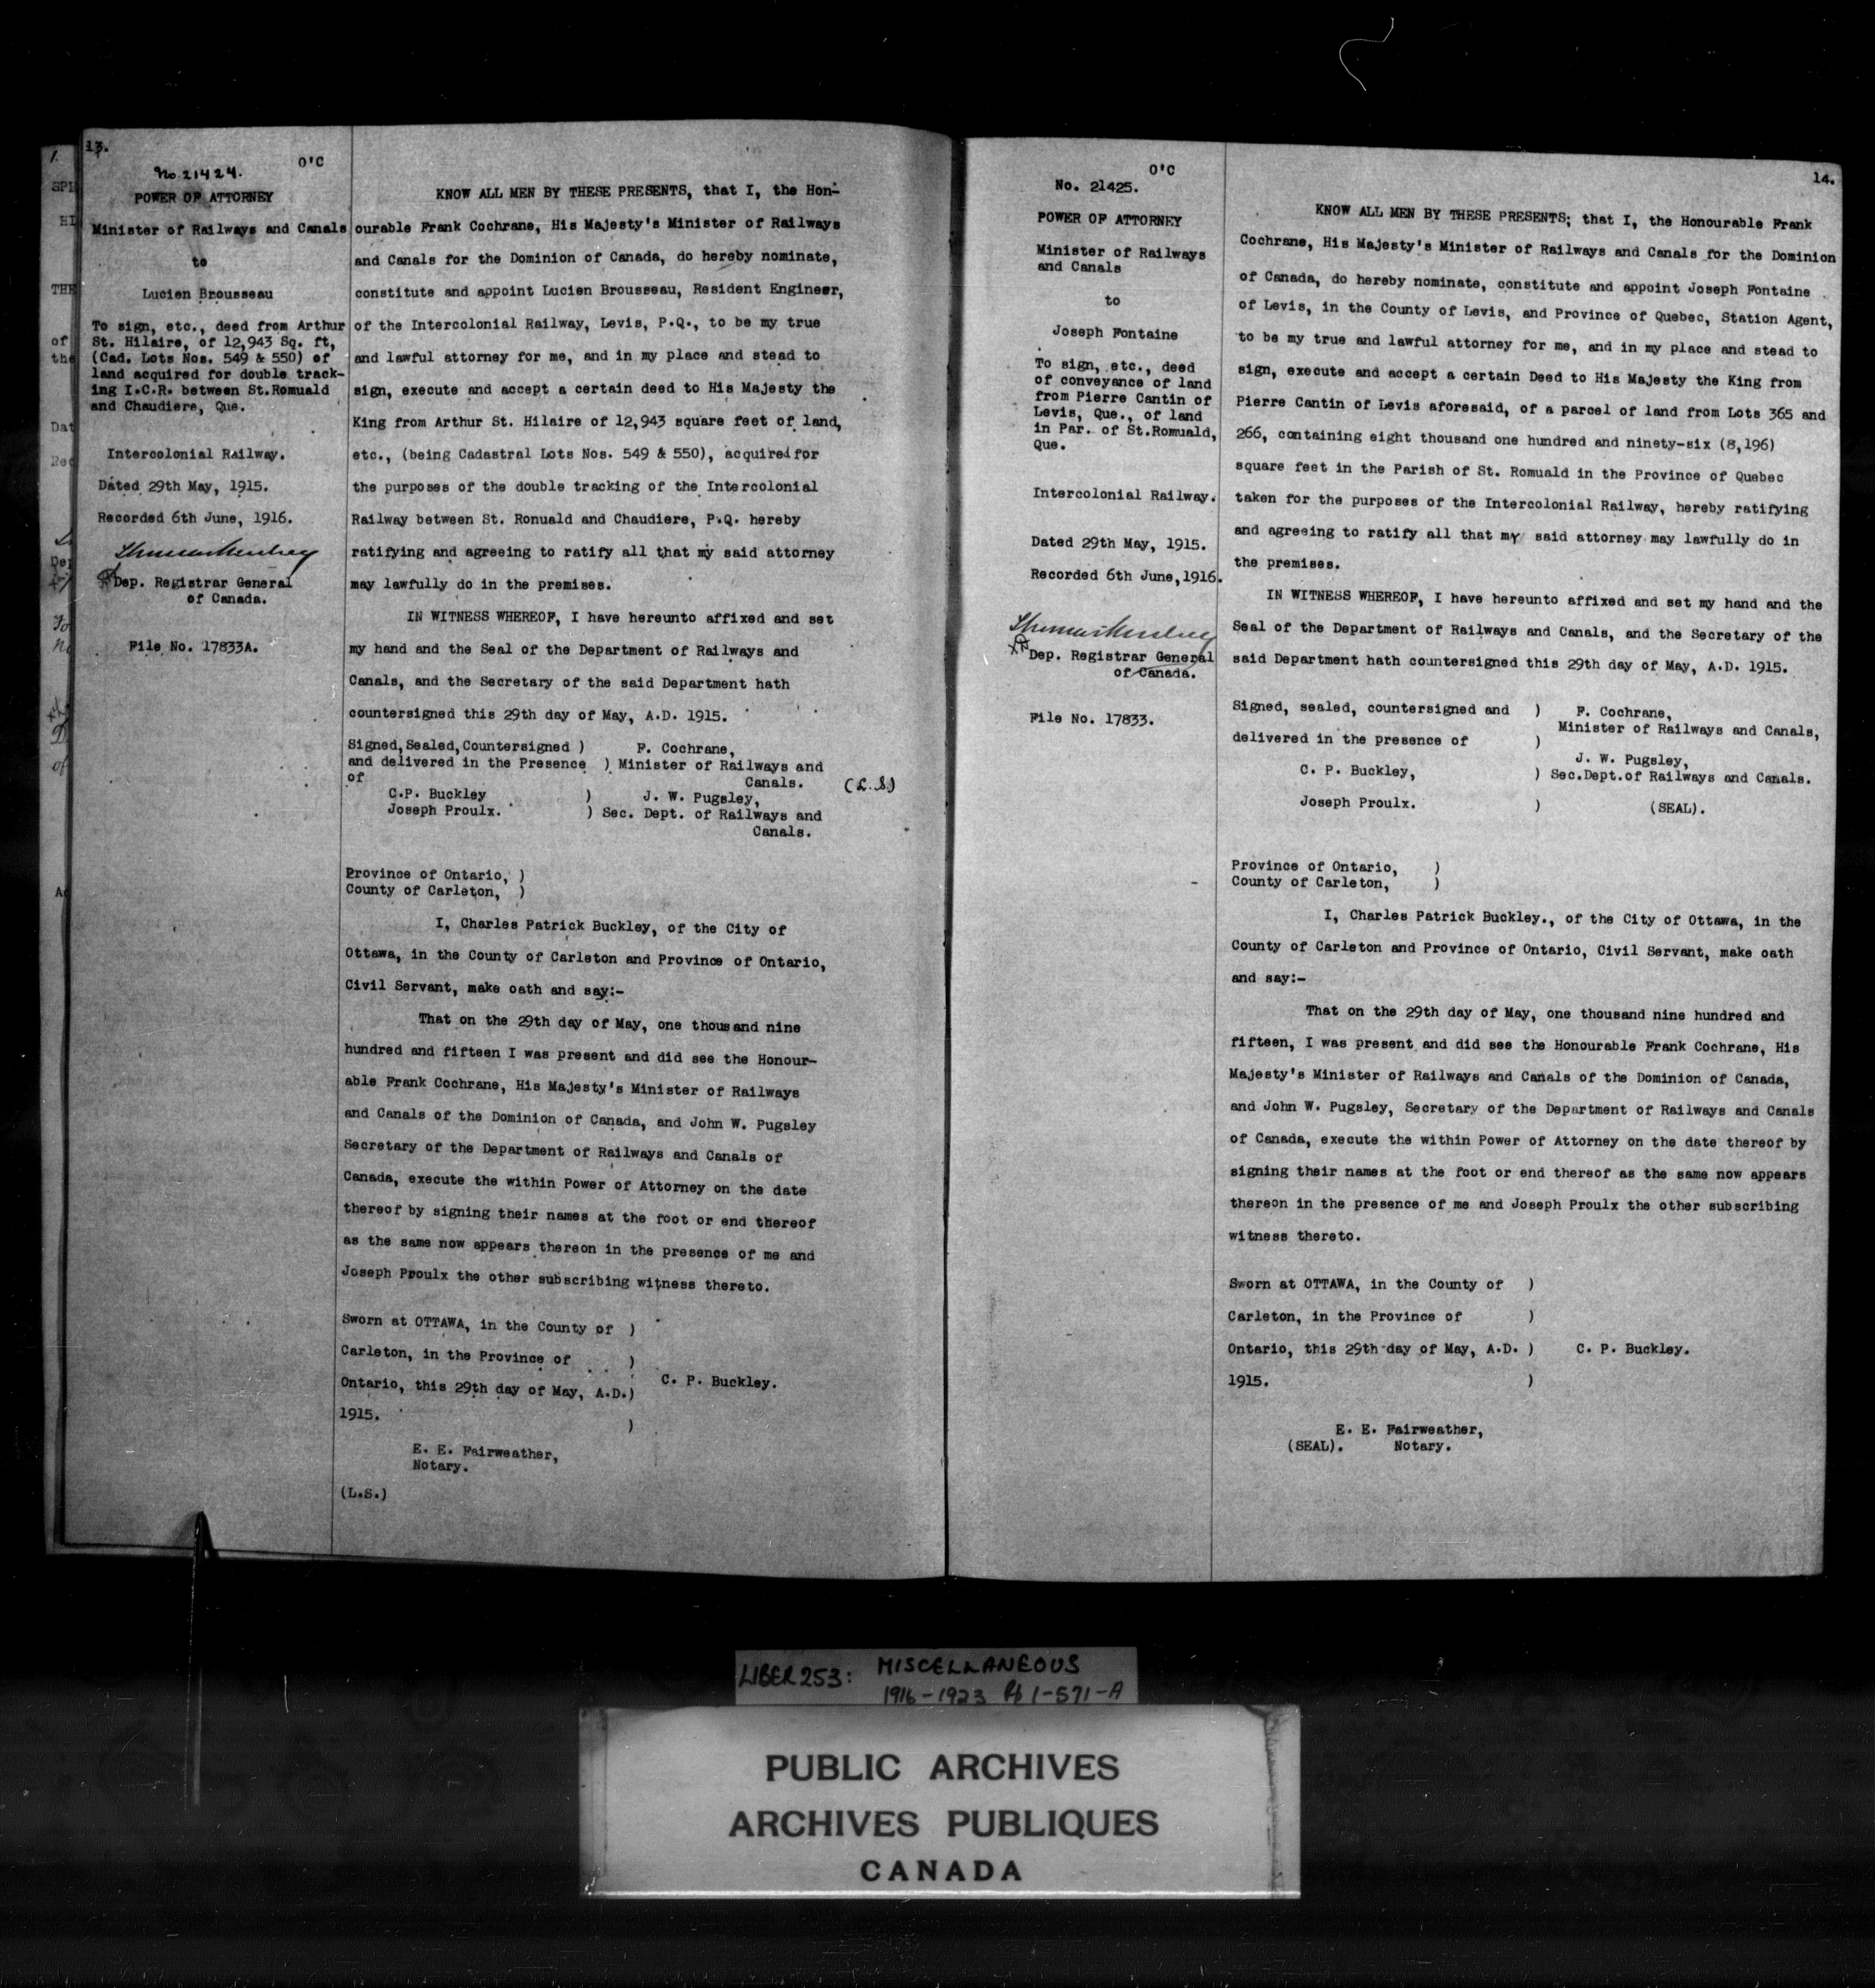 13.
O'C
No 21424.
POWER OF ATTORNEY
Minister of Railways and Canals
to
Lucien Brousseau
To sign, etc., deed from Arthur
St. Hilaire, of 12,943 Sq. ft,
(Cad. Lots Nos. 549 & 550) of
land acquired for double track-
ing I.C.R. between St.Romuald
and Chaudiere, Que.
Intercolonial Railway.
Dated 29th May, 1915.
Recorded 6th June, 1916.
Dep. Registrar General
of Canada.
File No. 17833A.
KNOW ALL MEN BY THESE PRESENTS, that I, the Hon-
ourable Frank Cochrane, His Majesty's Minister of Railways
and Canals for the Dominion of Canada, do hereby nominate,
constitute and appoint Lucien Brousseau, Resident Engineer,
of the Intercolonial Railway, Levis, P.Q., to be my true
and lawful attorney for me, and in my place and stead to
sign, execute and accept a certain deed to His Majesty the
King from Arthur St. Hilaire of 12,943 square feet of land,
etc., (being Cadastral Lots Nos. 549 & 550), acquired for
the purposes of the double tracking of the Intercolonial
Railway between St. Ronuald and Chaudiere, P.Q. hereby
ratifying and agreeing to ratify all that my said attorney
may lawfully do in the premises.
IN WITNESS WHEREOF, I have hereunto affixed and set
my hand and the Seal of the Department of Railways and
Canals, and the Secretary of the said Department hath
countersigned this 29th day of May, A.D. 1915.
Signed, Sealed, Countersigned ) F. Cochrane,
and delivered in the Presence ) Minister of Railways and
of Canals. (L.S)
C.P. Buckley ) J. W. Pugsley,
Joseph Proulx. ) Sec. Dept. of Railways and
Canals.
Province of Ontario, )
County of Carleton, )
I, Charles Patrick Buckley, of the City of
Ottawa, in the County of Carleton and Province of Ontario,
Civil Servant, make oath and say:-
That on the 29th day of May, one thousand nine
hundred and fifteen I was present and did see the Honour-
able Frank Cochrane, His Majesty's Minister of Railways
and Canals of the Dominion of Canada, and John W. Pugsley
Secretary of the Department of Railways and Canals of
Canada, execute the within Power of Attorney on the date
thereof by signing their names at the foot or end thereof
as the same now appears thereon in the presence of me and
Joseph Proulx the other subscribing witness thereto.
Sworn at OTTAWA, in the County of )
Carleton, in the Province of )
Ontario, this 29th day of May, A.D.) C. P. Buckley.
1915. )
E. E. Fairweather,
Notary.
(L.S.)
14.
O'C
No. 21425.
POWER OF ATTORNEY
Minister of Railways
and Canals
to
Joseph Fontaine
To sign, etc., deed
of conveyance of land
from Pierre Cantin of
Levis, Que., of land
in Par. of St.Romuald,
Que.
Intercolonial Railway.
Dated 29th May, 1915.
Recorded 6th June, 1916.
Dep. Registrar General
of Canada.
File No. 17833.
KNOW ALL MEN BY THESE PRESENTS; that I, the Honourable Frank
Cochrane, His Majesty's Minister of Railways and Canals for the Dominion
of Canada, do hereby nominate, constitute and appoint Joseph Fontaine
of Levis, in the County of Levis, and Province of Quebec, Station Agent,
to be my true and lawful attorney for me, and in my place and stead to
sign, execute and accept a certain Deed to His Majesty the King from
Pierre Cantin of Levis aforesaid, of a parcel of land from Lots 365 and
266, containing eight thousand one hundred and ninety-six (8,196)
square feet in the Parish of St. Romuald in the Province of Quebec
taken for the purposes of the Intercolonial Railway, hereby ratifying
and agreeing to ratify all that my said attorney may lawfully do in
the premises.
IN WITNESS WHEREOF, I have hereunto affixed and set my hand and the
Seal of the Department of Railways and Canals, and the Secretary of the
said Department hath countersigned this 29th day of May, A.D. 1915.
Signed, sealed, countersigned and ) F. Cochrane,
Minister of Railways and Canals,
delivered in the presence of )
J. W. Pugsley,
C. P. Buckley, ) Sec.Dept.of Railways and Canals.
Joseph Proulx. ) (SEAL).
Province of Ontario, )
County of Carleton, )
I, Charles Patrick Buckley., of the City of Ottawa, in the
County of Carleton and Province of Ontario, Civil Servant, make oath
and say:-
That on the 29th day of May, one thousand nine hundred and
fifteen, I was present and did see the Honourable Frank Cochrane, His
Majesty's Minister of Railways and Canals of the Dominion of Canada,
and John W. Pugsley, Secretary of the Department of Railways and Canals
of Canada, execute the within Power of Attorney on the date thereof by
signing their names at the foot or end thereof as the same now appears
thereon in the presence of me and Joseph Proulx the other subscribing
witness thereto.
Sworn at OTTAWA, in the County of )
Carleton, in the Province of )
Ontario, this 29th day of May, A.D. ) C. P. Buckley.
1915. )
E. E. Fairweather,
(SEAL). Notary.
LIBER 253: MISCELLANEOUS
1916-1923 1-571-A
PUBLIC ARCHIVES
ARCHIVES PUBLIQUES
CANADA